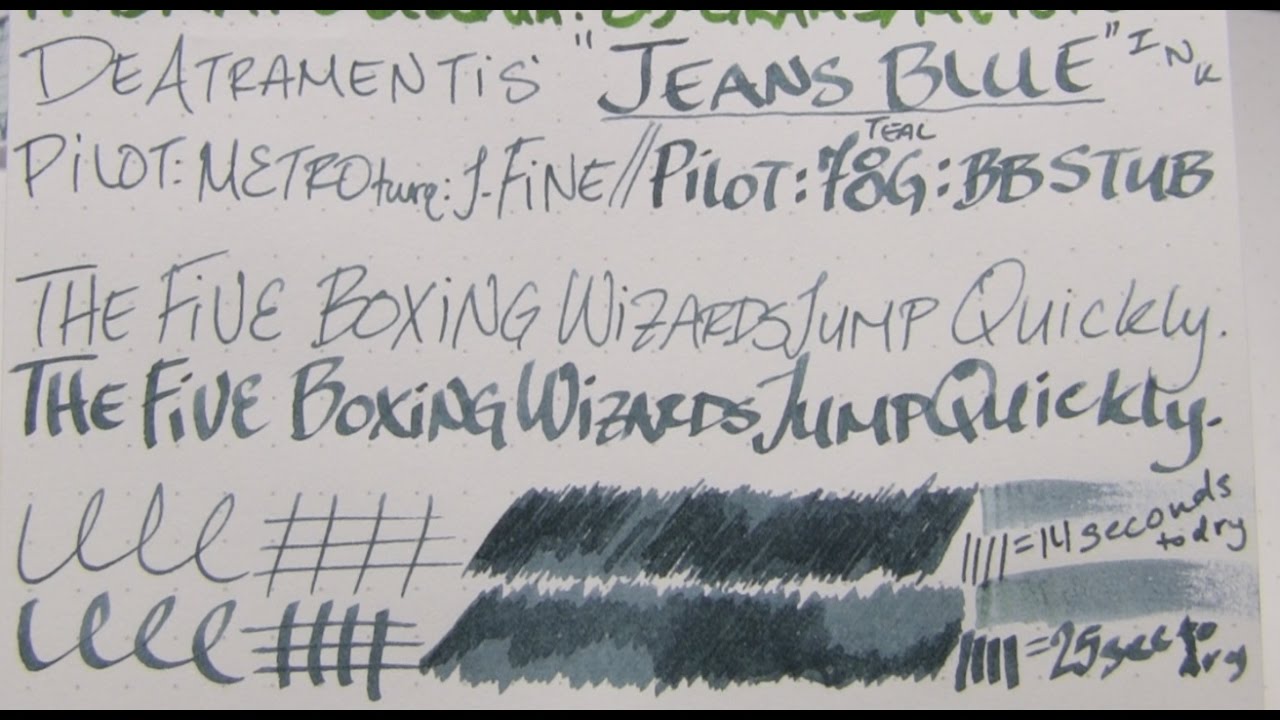 DeAtramentis "Jeans Blue" Ink
Pilot: Metroture: J-Fine // Pilot: 78G: BB Stub
Teal
The Five Boxing Wizards Jump Quickly.
The Five Boxing Wizards Jump Quickly.
= 14 seconds
to dry
= 25 sec to
dry